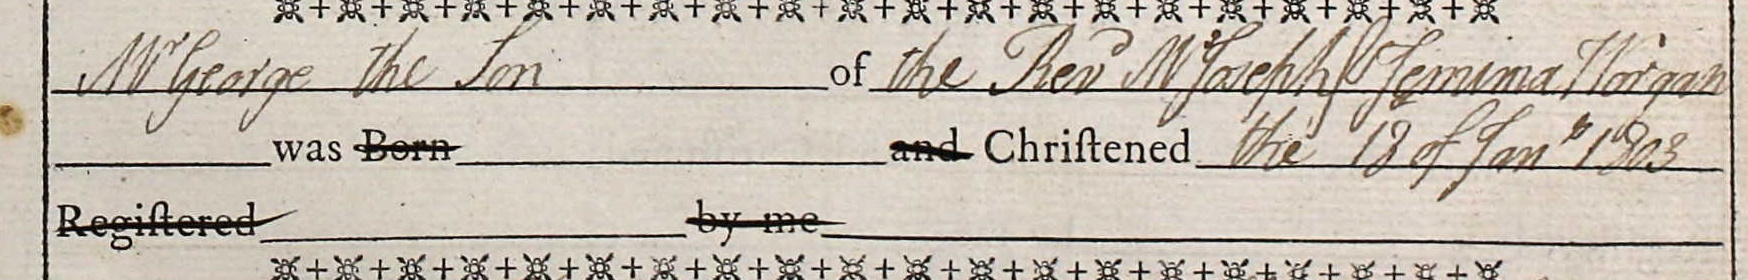 Mr George the Son of the Revd Mr Joseph & Jemima Worgan
was Born and Chriſtened the 18 of Jany 1803
Regiſtered by me